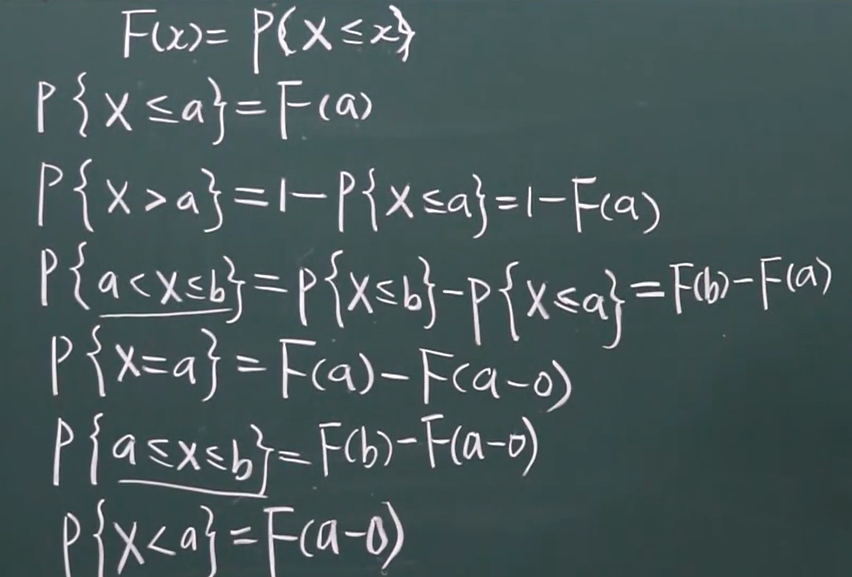 F(x)= P{X≤x}
P{X≤a}=F(a)
P{X>a}=1-P{X≤a}=1-F(a)
P{a<X≤b}=P{X≤b}-P{X≤a}=F(b)-F(a)
P{X=a}=F(a)-F(a-0)
P{a≤X≤b}=F(b)-F(a-0)
P{X<a}=F(a-0)